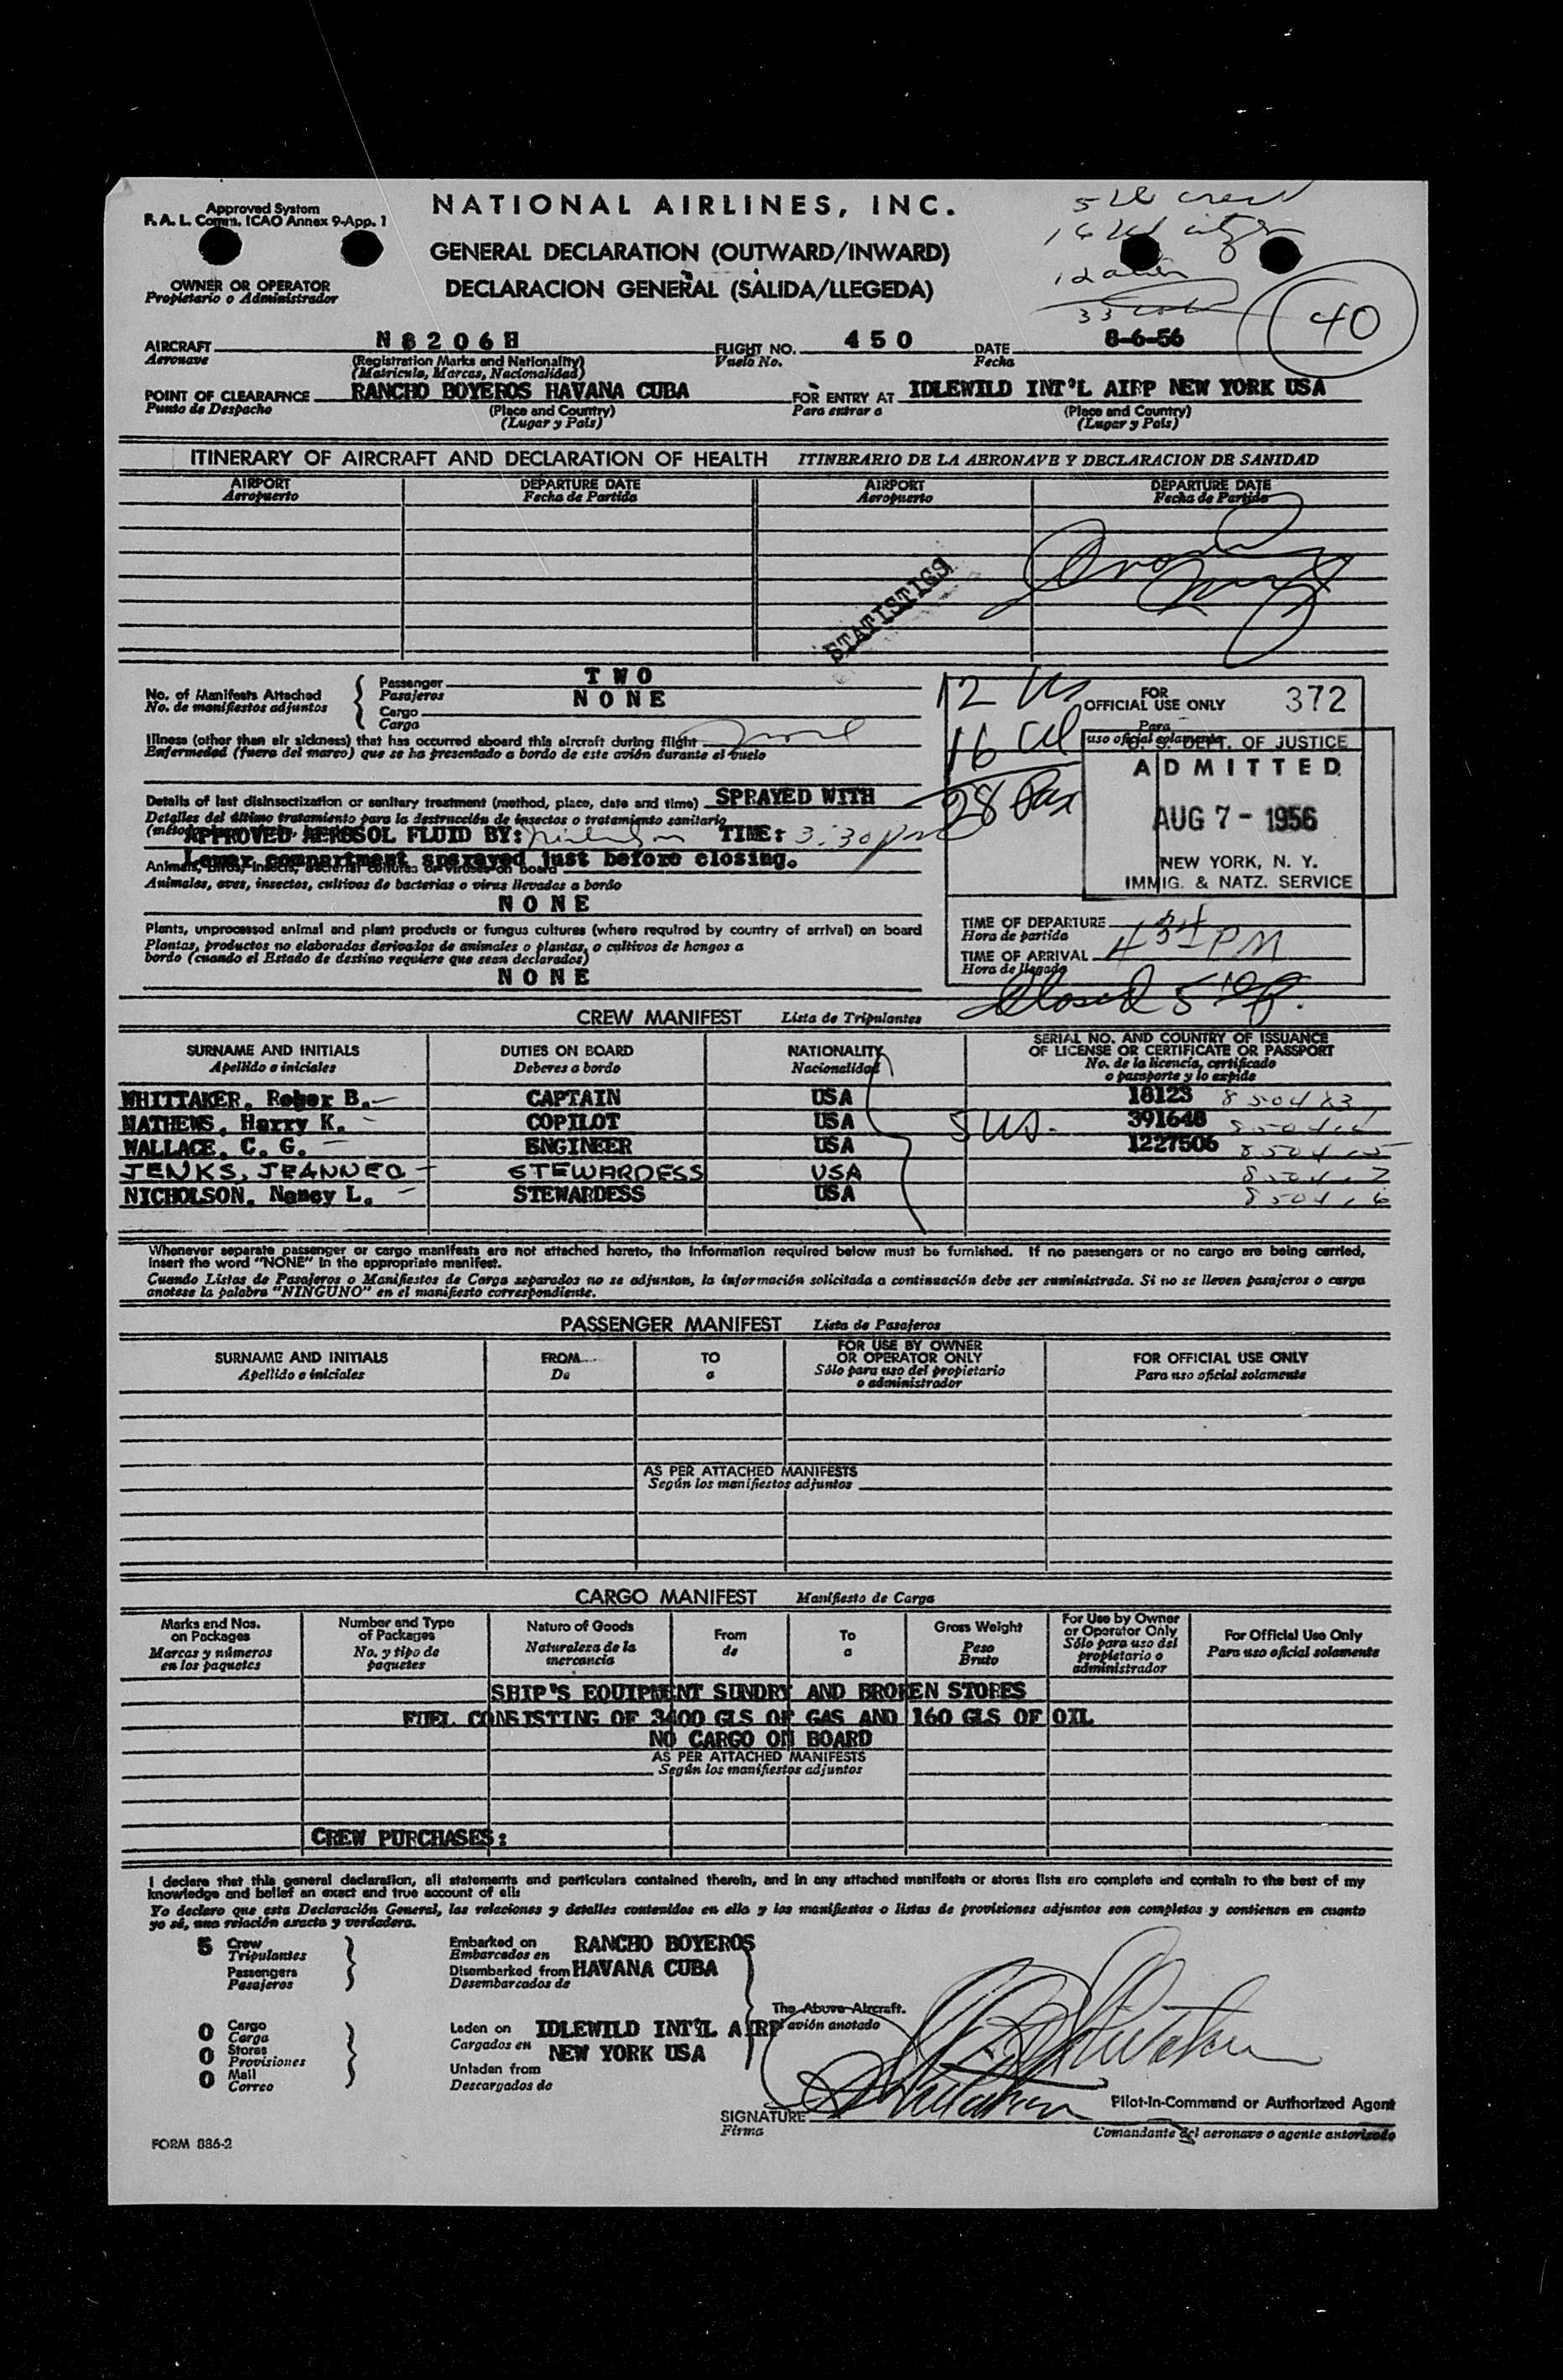 Approved System
F. A. L. Comm. ICAO Annex 9-App. 1
NATIONAL AIRLINES, INC.
GENERAL DECLARATION (OUTWARD/INWARD)
DECLARACION GENERAL (SALIDA/LLEGEDA)
OWNER OR OPERATOR
Propietario o Administrador
40
AIRCRAFT N 8 2 0 6 H FLIGHT NO. 4 5 0 DATE 8-6-56
Aeronave (Registration Marks and Nationality) Vuelo No. Fecha
(Matricula, Marcas, Nacionalidad)
POINT OF CLEARAFNCE RANCHO BOYEROS HAVANA CUBA FOR ENTRY AT IDLEWILD INT'L AIRP NEW YORK USA
Punto de Despacho (Place and Country) Para entrar a (Place and Country)
(Lugar y País) (Lugar y País)
ITINERARY OF AIRCRAFT AND DECLARATION OF HEALTH ITINERARIO DE LA AERONAVE Y DECLARACION DE SANIDAD
AIRPORT DEPARTURE DATE AIRPORT DEPARTURE DATE
Aeropuerto Fecha de Partida Aeropuerto Fecha de Partida
STATISTICS
No. of Manifests Attached
No. de manifiestos adjuntos
Passenger T W O
Pasajeros
Cargo N O N E
Carga
12 US
16 Cu
28 Pax
FOR
OFFICIAL USE ONLY 372
Para
uso oficial solamente
U. S. DEPT. OF JUSTICE
ADMITTED
AUG 7 - 1956
NEW YORK, N. Y.
IMMIG. & NATZ. SERVICE
Illness (other than air sickness) that has occurred aboard this aircraft during flight none
Enfermedad (fuera del mareo) que se ha presentado a bordo de este avión durante el vuelo
Details of last disinsectization or sanitary treatment (method, place, date and time) SPRAYED WITH
Detalles del último tratamiento para la destrucción de insectos o tratamiento sanitario
APPROVED AEROSOL FLUID BY: TIME: 3:30 pm
Lower compartment sprayed just before closing.
Animales, aves, insectos, cultivos de bacterias o virus llevados a bordo
N O N E
Plants, unprocessed animal and plant products or fungus cultures (where required by country of arrival) on board
Plantas, productos no elaborados derivados de animales o plantas, o cultivos de hongos a
bordo (cuando el Estado de destino requiere que sean declarados)
N O N E
TIME OF DEPARTURE
Hora de partida
TIME OF ARRIVAL
Hora de llegada
PM
Closed
CREW MANIFEST Lista de Tripulantes
SURNAME AND INITIALS DUTIES ON BOARD NATIONALITY SERIAL NO. AND COUNTRY OF ISSUANCE
OF LICENSE OR CERTIFICATE OR PASSPORT
Apellido e iniciales Deberes a bordo Nacionalidad No. de la licencia, certificado
o pasaporte y lo expide
WHITTAKER, Roger B. CAPTAIN USA 18123
MATHEWS, Harry K. COPILOT USA 391648
WALLACE, C. G. ENGINEER USA 1227506
JENKS, JEANNE STEWARDESS USA
NICHOLSON, Nancy L. STEWARDESS USA
Whenever separate passenger or cargo manifests are not attached hereto, the information required below must be furnished. If no passengers or no cargo are being carried,
insert the word "NONE" in the appropriate manifest.
Cuando Listas de Pasajeros o Manifiestos de Carga separados no se adjuntan, la información solicitada a continuación debe ser suministrada. Si no se lleven pasajeros o carga
anotese la palabra "NINGUNO" en el manifiesto correspondiente.
PASSENGER MANIFEST Lista de Pasajeros
SURNAME AND INITIALS FROM TO FOR USE BY OWNER
OR OPERATOR ONLY FOR OFFICIAL USE ONLY
Apellido e iniciales De a Sólo para uso del propietario
o administrador Para uso oficial solamente
AS PER ATTACHED MANIFESTS
Según los manifiestos adjuntos
CARGO MANIFEST Manifiesto de Carga
Marks and Nos.
on Packages
Marcas y números
en los paquetes
Number and Type
of Packages
No. y tipo de
paquetes
Nature of Goods
Naturaleza de la
mercancia
From
de
To
a
Gross Weight
Peso
Bruto
For Use by Owner
or Operator Only
Sólo para uso del
propietario o
administrador
For Official Use Only
Para uso oficial solamente
SHIP'S EQUIPMENT SUNDRY AND BROKEN STORES
FUEL CONSISTING OF 3400 GLS OF GAS AND 160 GLS OF OIL
NO CARGO ON BOARD
AS PER ATTACHED MANIFESTS
Según los manifiestos adjuntos
CREW PURCHASES:
I declare that this general declaration, all statements and particulars contained therein, and in any attached manifests or stores lists are complete and contain to the best of my
knowledge and belief an exact and true account of all:
Yo declaro que esta Declaración General, las relaciones y detalles contenidos en ella y los manifiestos o listas de provisiones adjuntos son completos y contienen en cuanto
yo sé, una relación exacta y verdadera.
5 Crew
Tripulantes
Passengers
Pasajeros
Embarked on RANCHO BOYEROS
Embarcados en
Disembarked from HAVANA CUBA
Desembarcados de
0 Cargo
Carga
0 Stores
Provisiones
0 Mail
Correo
Laden on IDLEWILD INT'L AIRP
Cargados en NEW YORK USA
Unladen from
Descargados de
The Above Aircraft.
avión anotado
SIGNATURE
Firma
Pilot-in-Command or Authorized Agent
Comandante del aeronave o agente autorizado
FORM 886-2